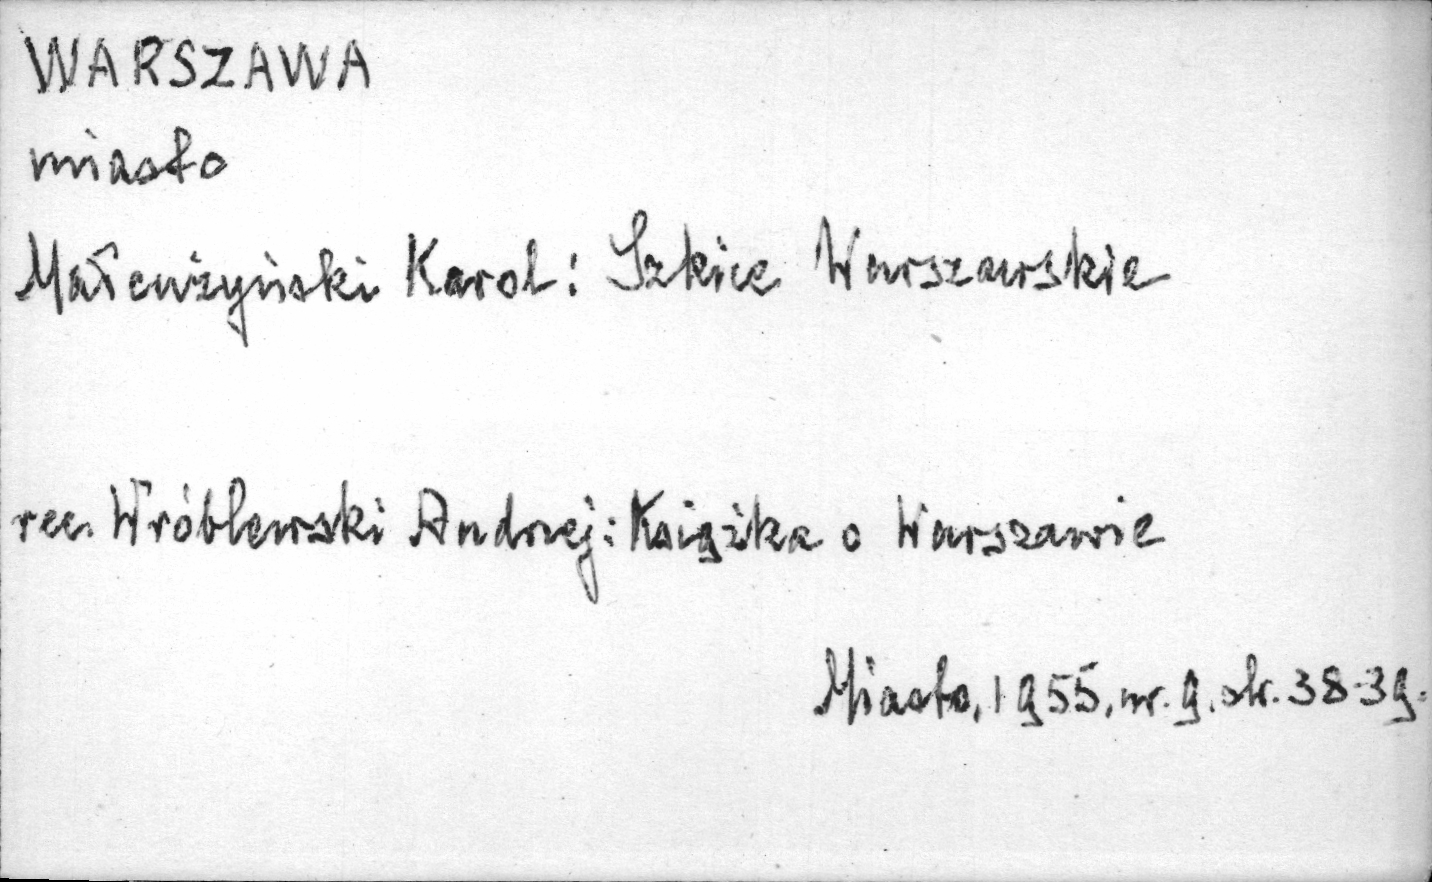 WARSZAWA
miasto
Małcużyński Karol: Szkice Warszawskie
rec. Wróblewski Andrzej: Książka o Warszawie
Miasto, 1955, nr. 9, str. 38-39.